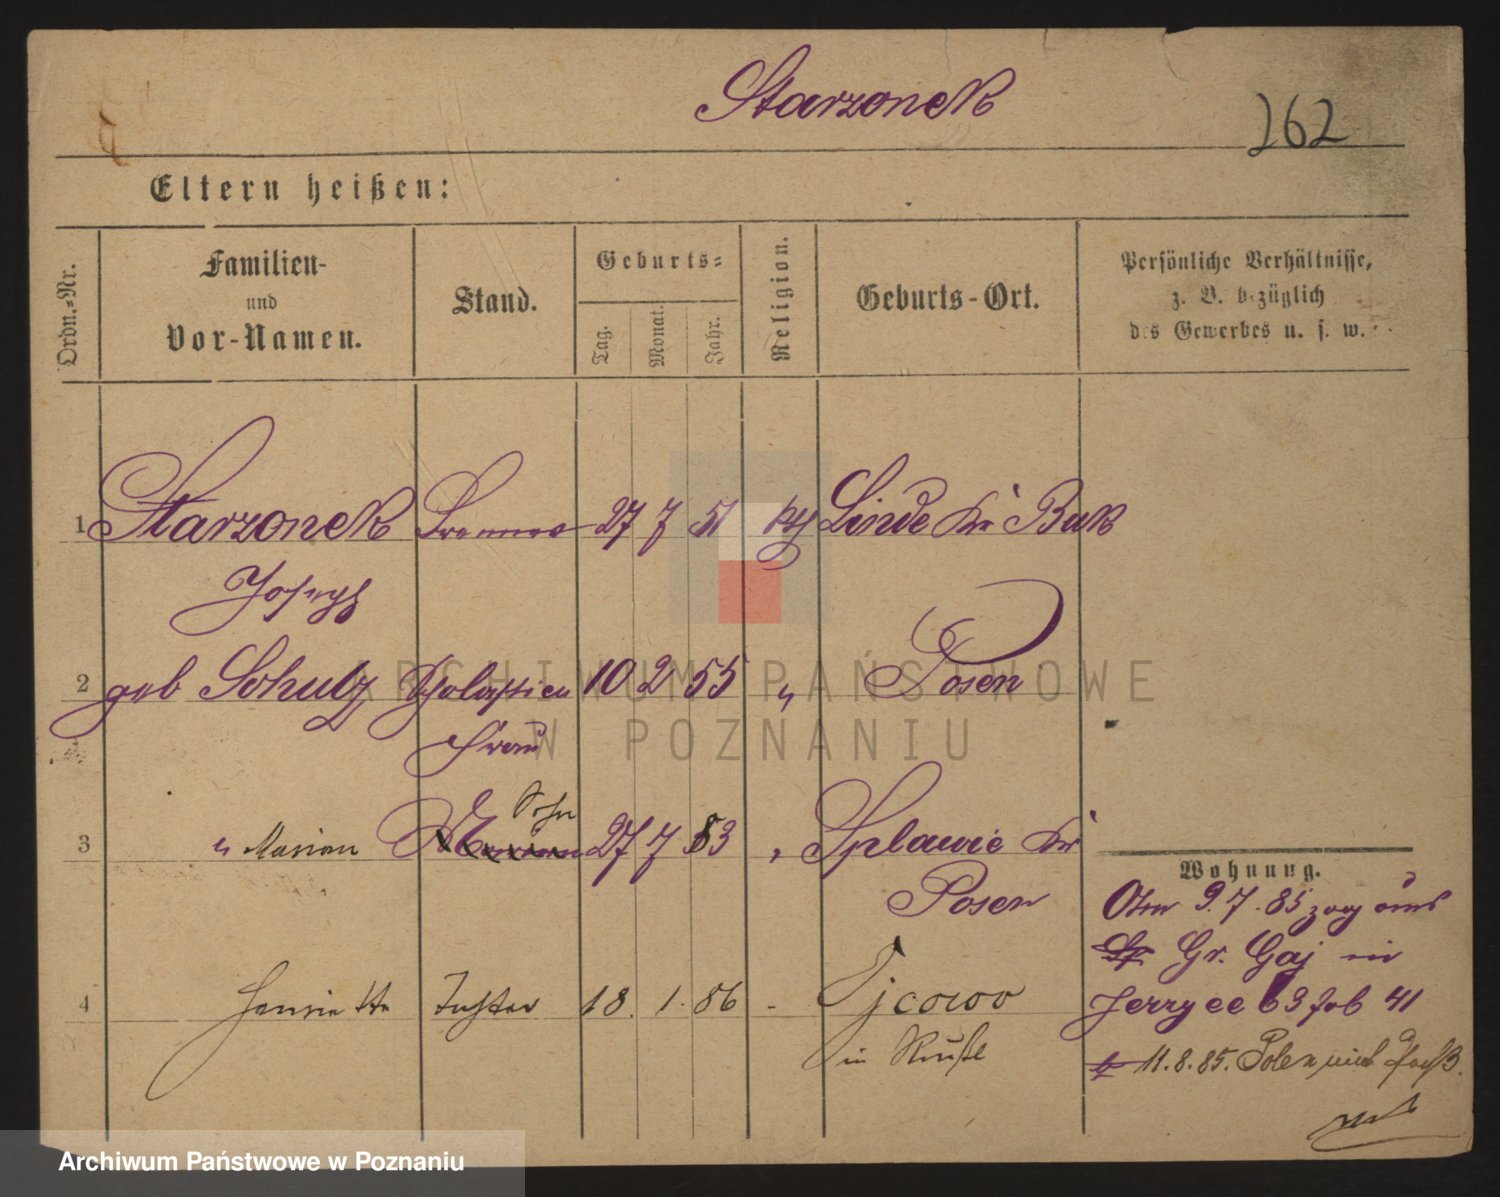 Starzonek
262
Eltern heißen:
Ordn.-Nr.
Familien-
und
Vor-Namen.
Stand.
Geburts-
Tag.
Monat.
Jahr.
Religion.
Geburts-Ort.
Persönliche Verhältnisse,
z. B. bezüglich
des Gewerbes u. s. w.
1 Starzonek 27 7 51 Linde Kr Buk
Joseph
2 geb Schulz 10 2 55 " Posen
Frau
Sohn
3 " Marian 27 7 83 " Splawie Kr
Posen
4 Henriette Tochter 18. 1. 86 -
in
Wohnung.
9.7.85 zog aus
Gr. Gaj in
Jerzyce 63 41
11.8.85. Polen
ARCHIWUM PAŃSTWOWE
W POZNANIU
Archiwum Państwowe w Poznaniu